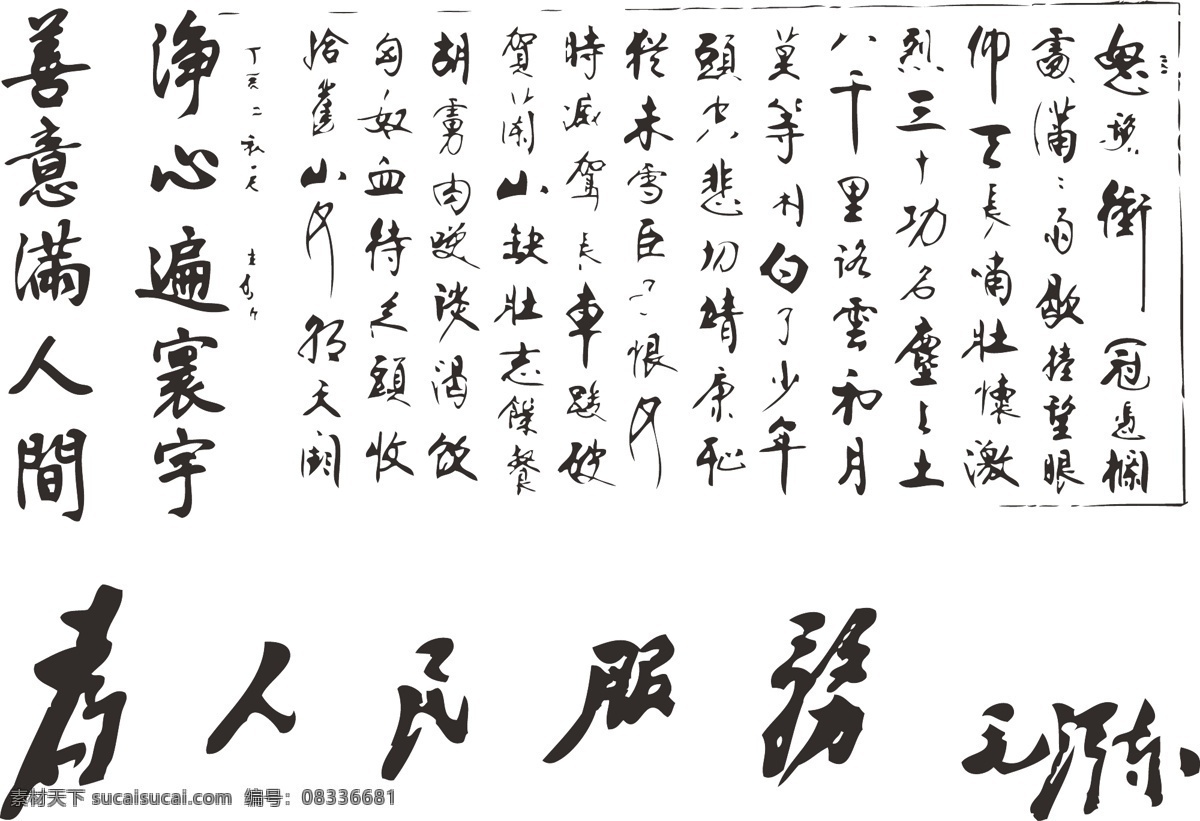 怒髮衝冠憑欄
處瀟〻雨歇擡望眼
仰天長嘯壯懷激
烈三十功名塵與土
八千里路雲和月
莫等閑白了少年
頭空悲切靖康恥
猶未雪臣子恨何
時滅駕長車踏破
賀蘭山缺壯志飢餐
胡虜肉笑談渴飲
匈奴血待從頭收
拾舊山河朝天闕
淨心遍寰宇
善意滿人間
為人民服務
毛澤東
素材天下 sucaisucai.com 编号：08336681